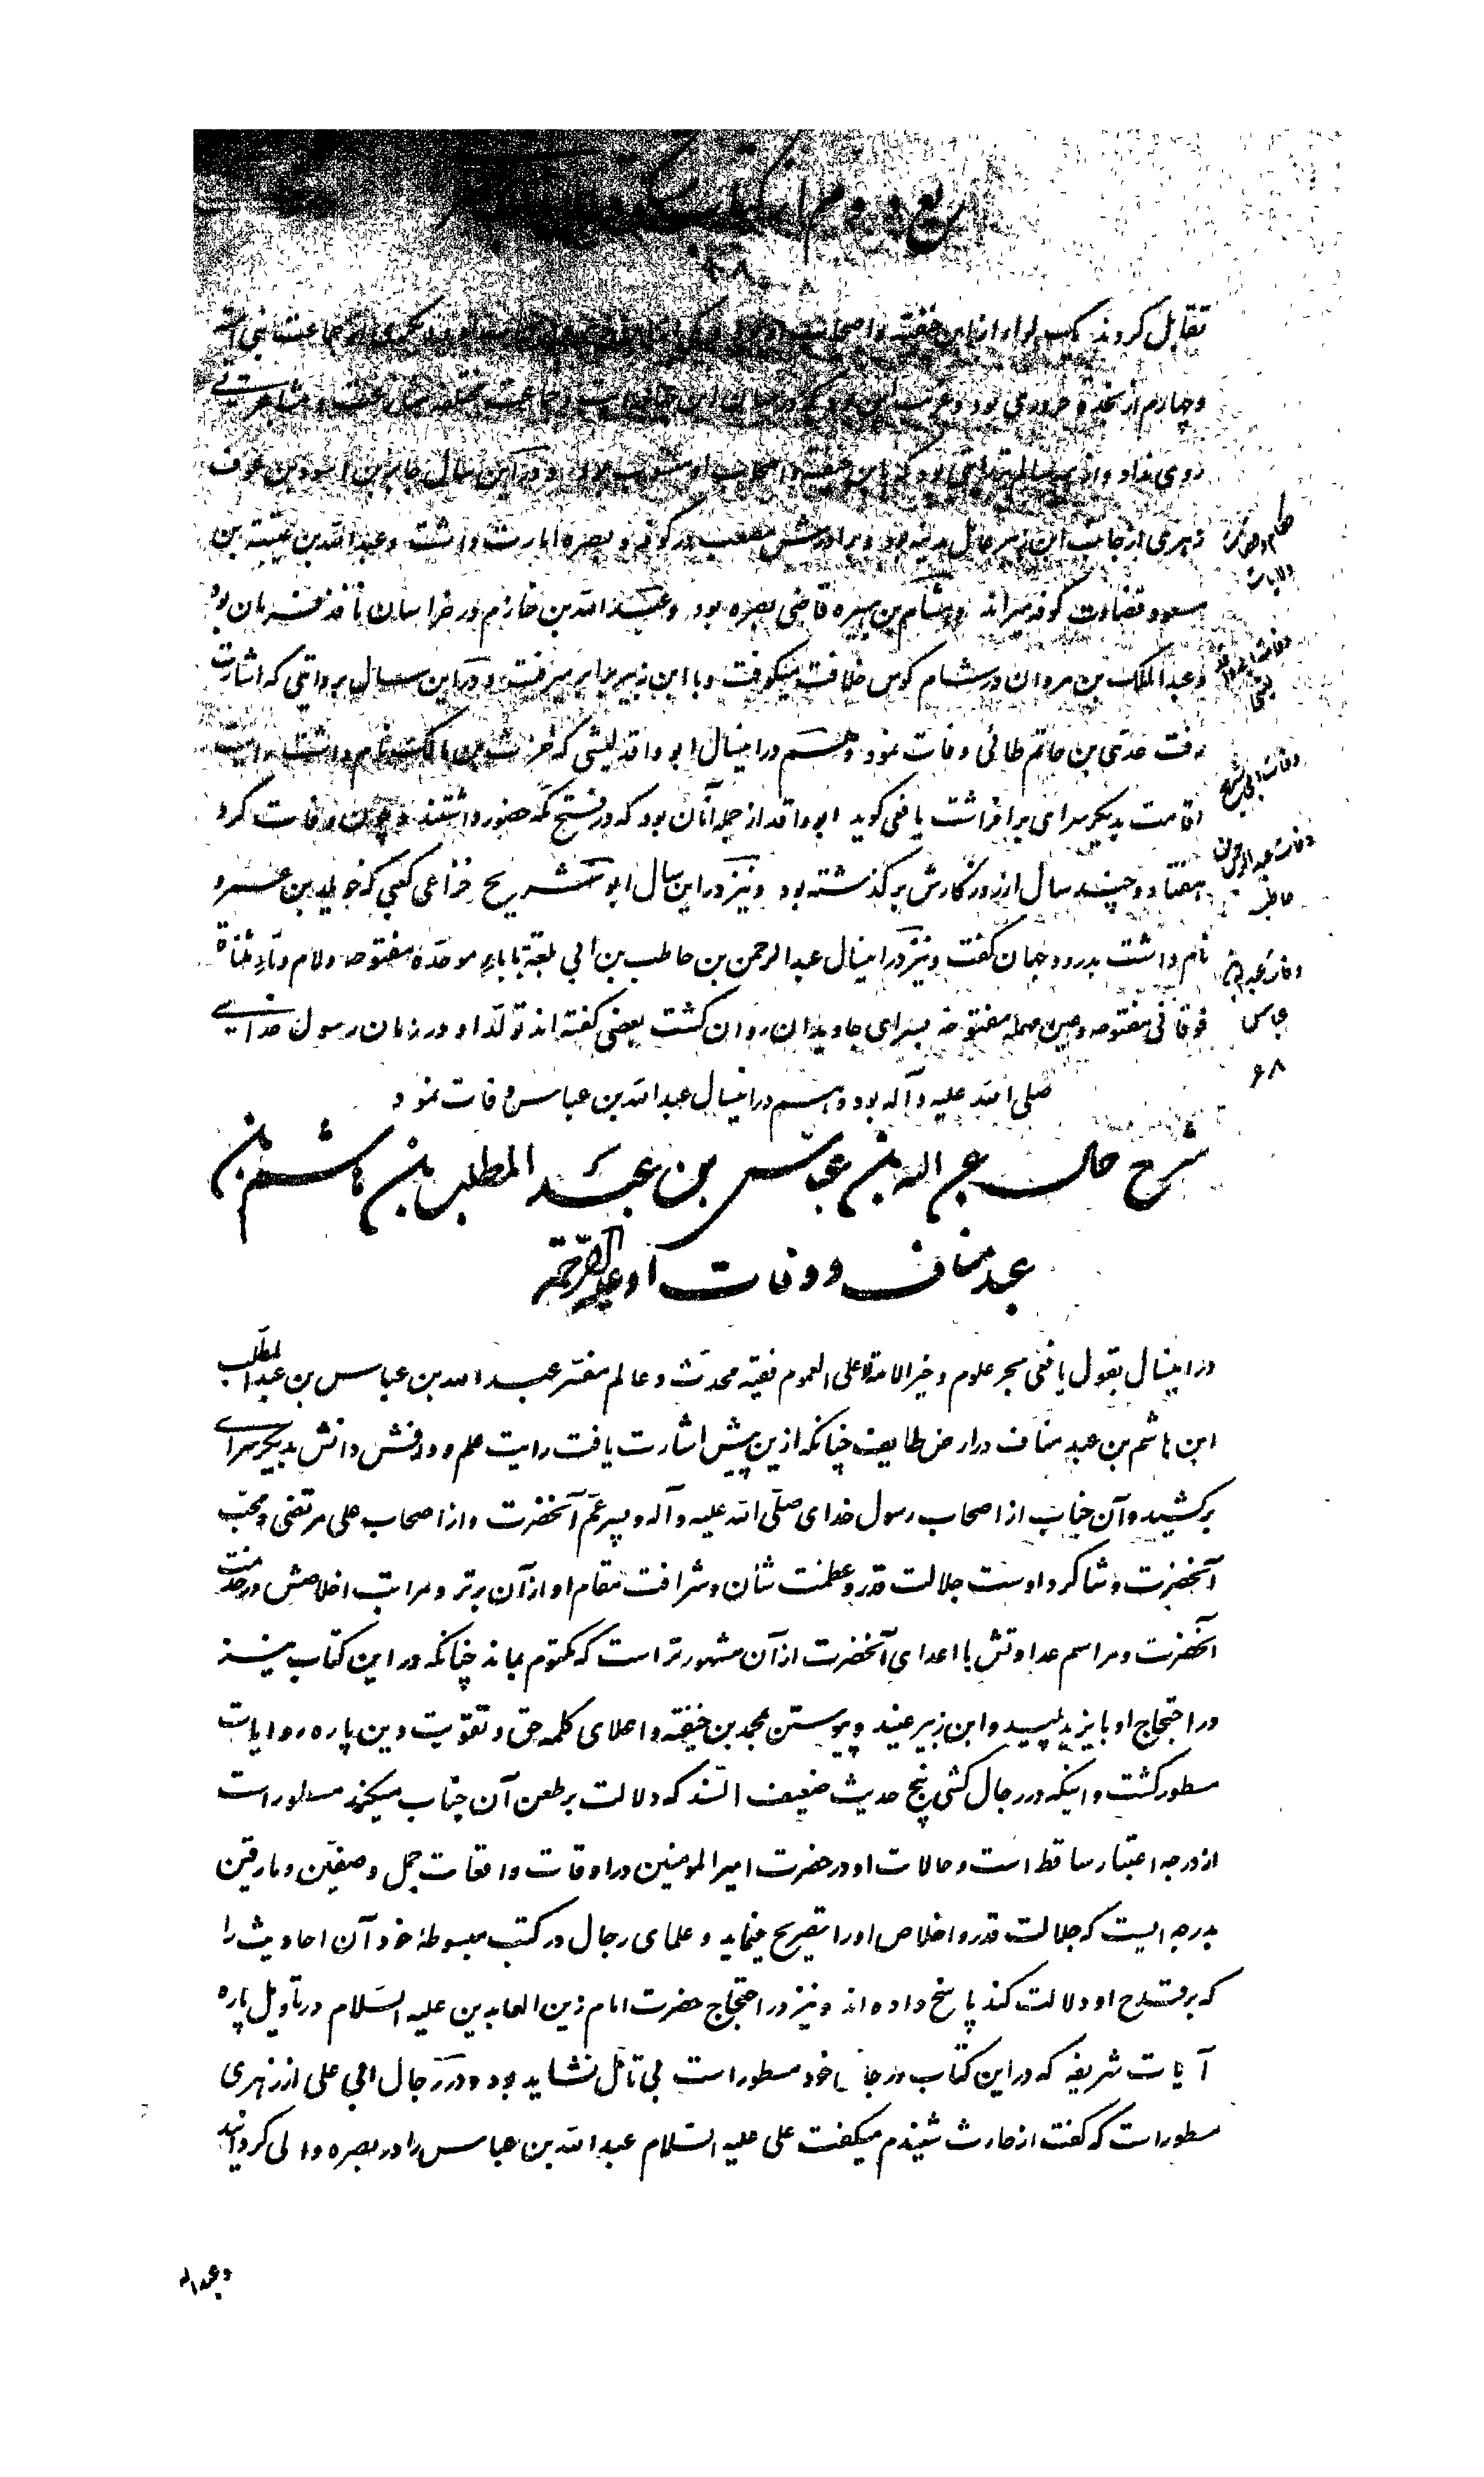 ربع دوم از کتاب
تقابل کردند یک لوا از ابن حنفیه و اصحاب
و چهارم از نجده حروری بود
روی نداد و ابن حنفیه و اصحاب او و در این سال جابر بن اسود بن عوف
زهری از جانب ابن زبیر عامل مدینه بود و برادرش مصعب در کوفه و بصره امارت داشت و عبدالله بن عتبة بن
مسعود قضاوت کوفه میراند و هشام بن هبیره قاضی بصره بود و عبدالله بن خازم در خراسان نافذ فرمان بود
و عبدالملک بن مروان در شام کوس خلافت میکوفت و با ابن زبیر برابر میرفت و در این سال بروایتی که اشارت
رفت عدی بن حاتم طائی وفات نمود و هم در اینسال ابو واقد لیثی که حرث بن مالک نام داشت رایت
اقامت بدیگر سرای برافراشت یافعی گوید ابو واقد از جمله آنان بود که در فتح مکه حضور داشتند و چون وفات کرد
هفتاد و چند سال از روزگارش برگذشته بود و نیز در این سال ابو شریح خزاعی کعبی که خویلد بن عمرو
نام داشت بدرود جهان گفت و نیز در اینسال عبدالرحمن بن حاطب بن ابی بلتعة با باء موحدة مفتوحه و لام و تاء مثناة
فوقانی مفتوحه و عین مهمله مفتوحه بسرای جاویدان روان گشت بعضی گفته اند تولد او در زمان رسول خدای
صلی الله علیه و آله بود و هم در اینسال عبدالله بن عباس وفات نمود
شرح حال عبدالله بن عباس بن عبدالمطلب بن هاشم بن
عبد مناف و وفات او علیه الرحمة
در اینسال بقول یافعی بحر علوم و خیر الامة علی العموم فقیه محدث و عالم مفسر عبدالله بن عباس بن عبدالمطلب
ابن هاشم بن عبد مناف در ارض طایف چنانکه ازین پیش اشارت یافت رایت علم و درفش دانش بدیگر سرای
برکشید و آن جناب از اصحاب رسول خدای صلی الله علیه و آله و پسر عم آنحضرت و از اصحاب علی مرتضی و محب
آنحضرت و شاگرد اوست جلالت قدر و عظمت شأن و شرافت مقام او از آن برتر و مراتب اخلاصش در خدمت
آنحضرت و مراسم عداوتش با اعدای آنحضرت از آن مشهورتر است که مکتوم بماند چنانکه در این کتاب نیز
در احتجاج او با یزید پلید و ابن زبیر عنید و پیوستن بمحمد بن حنفیه و اعلای کلمه حق و تقویت دین پاره روایات
مسطور گشت و اینکه در رجال کشی پنج حدیث ضعیف السند که دلالت بر طعن آن جناب میکند مسطور است
از درجه اعتبار ساقط است و حالات او در حضرت امیرالمومنین در اوقات واقعات جمل و صفین و مارقین
بدرجه ایست که جلالت قدر و اخلاص او را تصریح مینماید و علمای رجال در کتب مبسوطه خود آن احادیث را
که بر قدح او دلالت کند پاسخ داده اند و نیز در احتجاج حضرت امام زین العابدین علیه السلام در تأویل پاره
آیات شریفه که در این کتاب در جای خود مسطور است بی تأمل نشاید بود و در رجال ابی علی از زهری
مسطور است که گفت از حارث شنیدم میگفت علی علیه السلام عبدالله بن عباس را در بصره والی گردانید
وفات عبدالله بن
عباس
۶۸
و عبداله